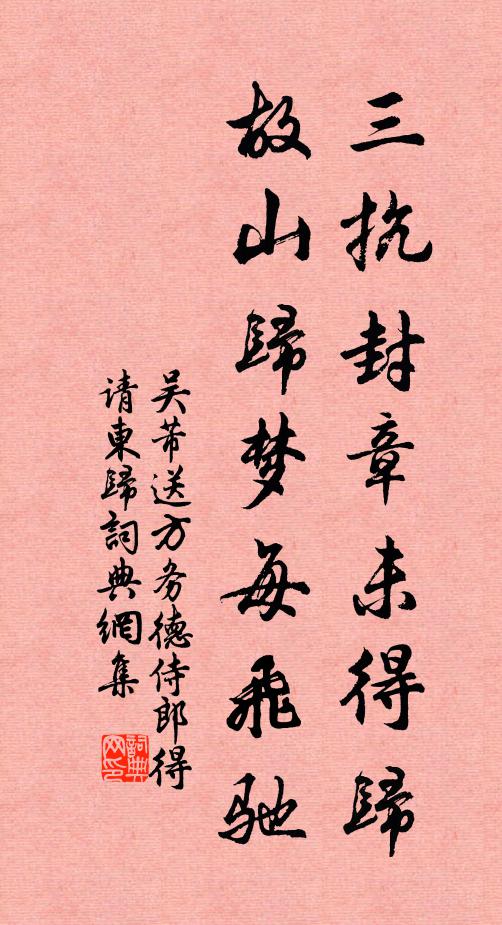 三抗封章未得歸
故山歸梦每飛驰
吴芾送方务德侍郎得
请東歸詞典網集
詞典
网印